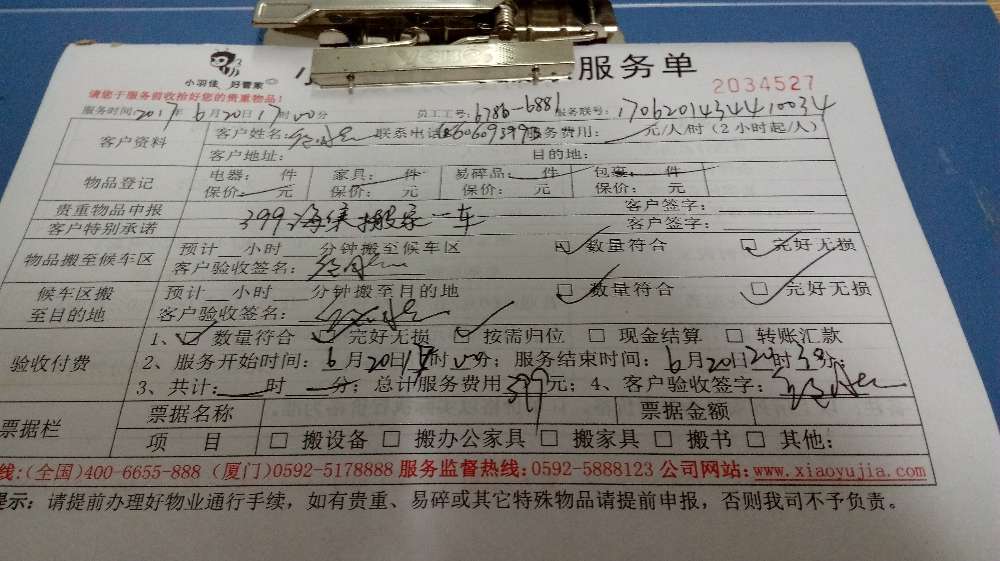 小羽佳 好管家
服务单
2034527
请您于服务前收拾好您的贵重物品!
服务时间: 2017年6月20日17时00分 员工工号: 6786-6881 服务联号: 170620143441 0034
客户资料 客户姓名: 联系电话 服务费用: 元/人/时 (2小时起/人)
客户地址: 目的地:
物品登记 电器: 件 家具: 件 易碎品: 件 包裹: 件
保价: 元 保价: 元 保价: 元 保价: 元
贵重物品申报 客户签字:
客户特别承诺 399 搬家一车 客户签字:
物品搬至候车区 预计 小时 分钟搬至候车区 数量符合 完好无损
客户验收签名:
候车区搬至目的地 预计 小时 分钟搬至目的地 数量符合 完好无损
客户验收签名:
验收付费 1、 数量符合 完好无损 按需归位 现金结算 转账汇款
2、服务开始时间: 6月20日17时00分; 服务结束时间: 6月20日 时 分;
3、共计: 时 分; 总计服务费用 399元; 4、客户验收签字:
票据栏 票据名称 票据金额
项 目 搬设备 搬办公家具 搬家具 搬书 其他:
线:(全国)400-6655-888 (厦门)0592-5178888 服务监督热线:0592-5888123 公司网站:www.xiaoyujia.com
提示: 请提前办理好物业通行手续,如有贵重、易碎或其它特殊物品请提前申报,否则我司不予负责。